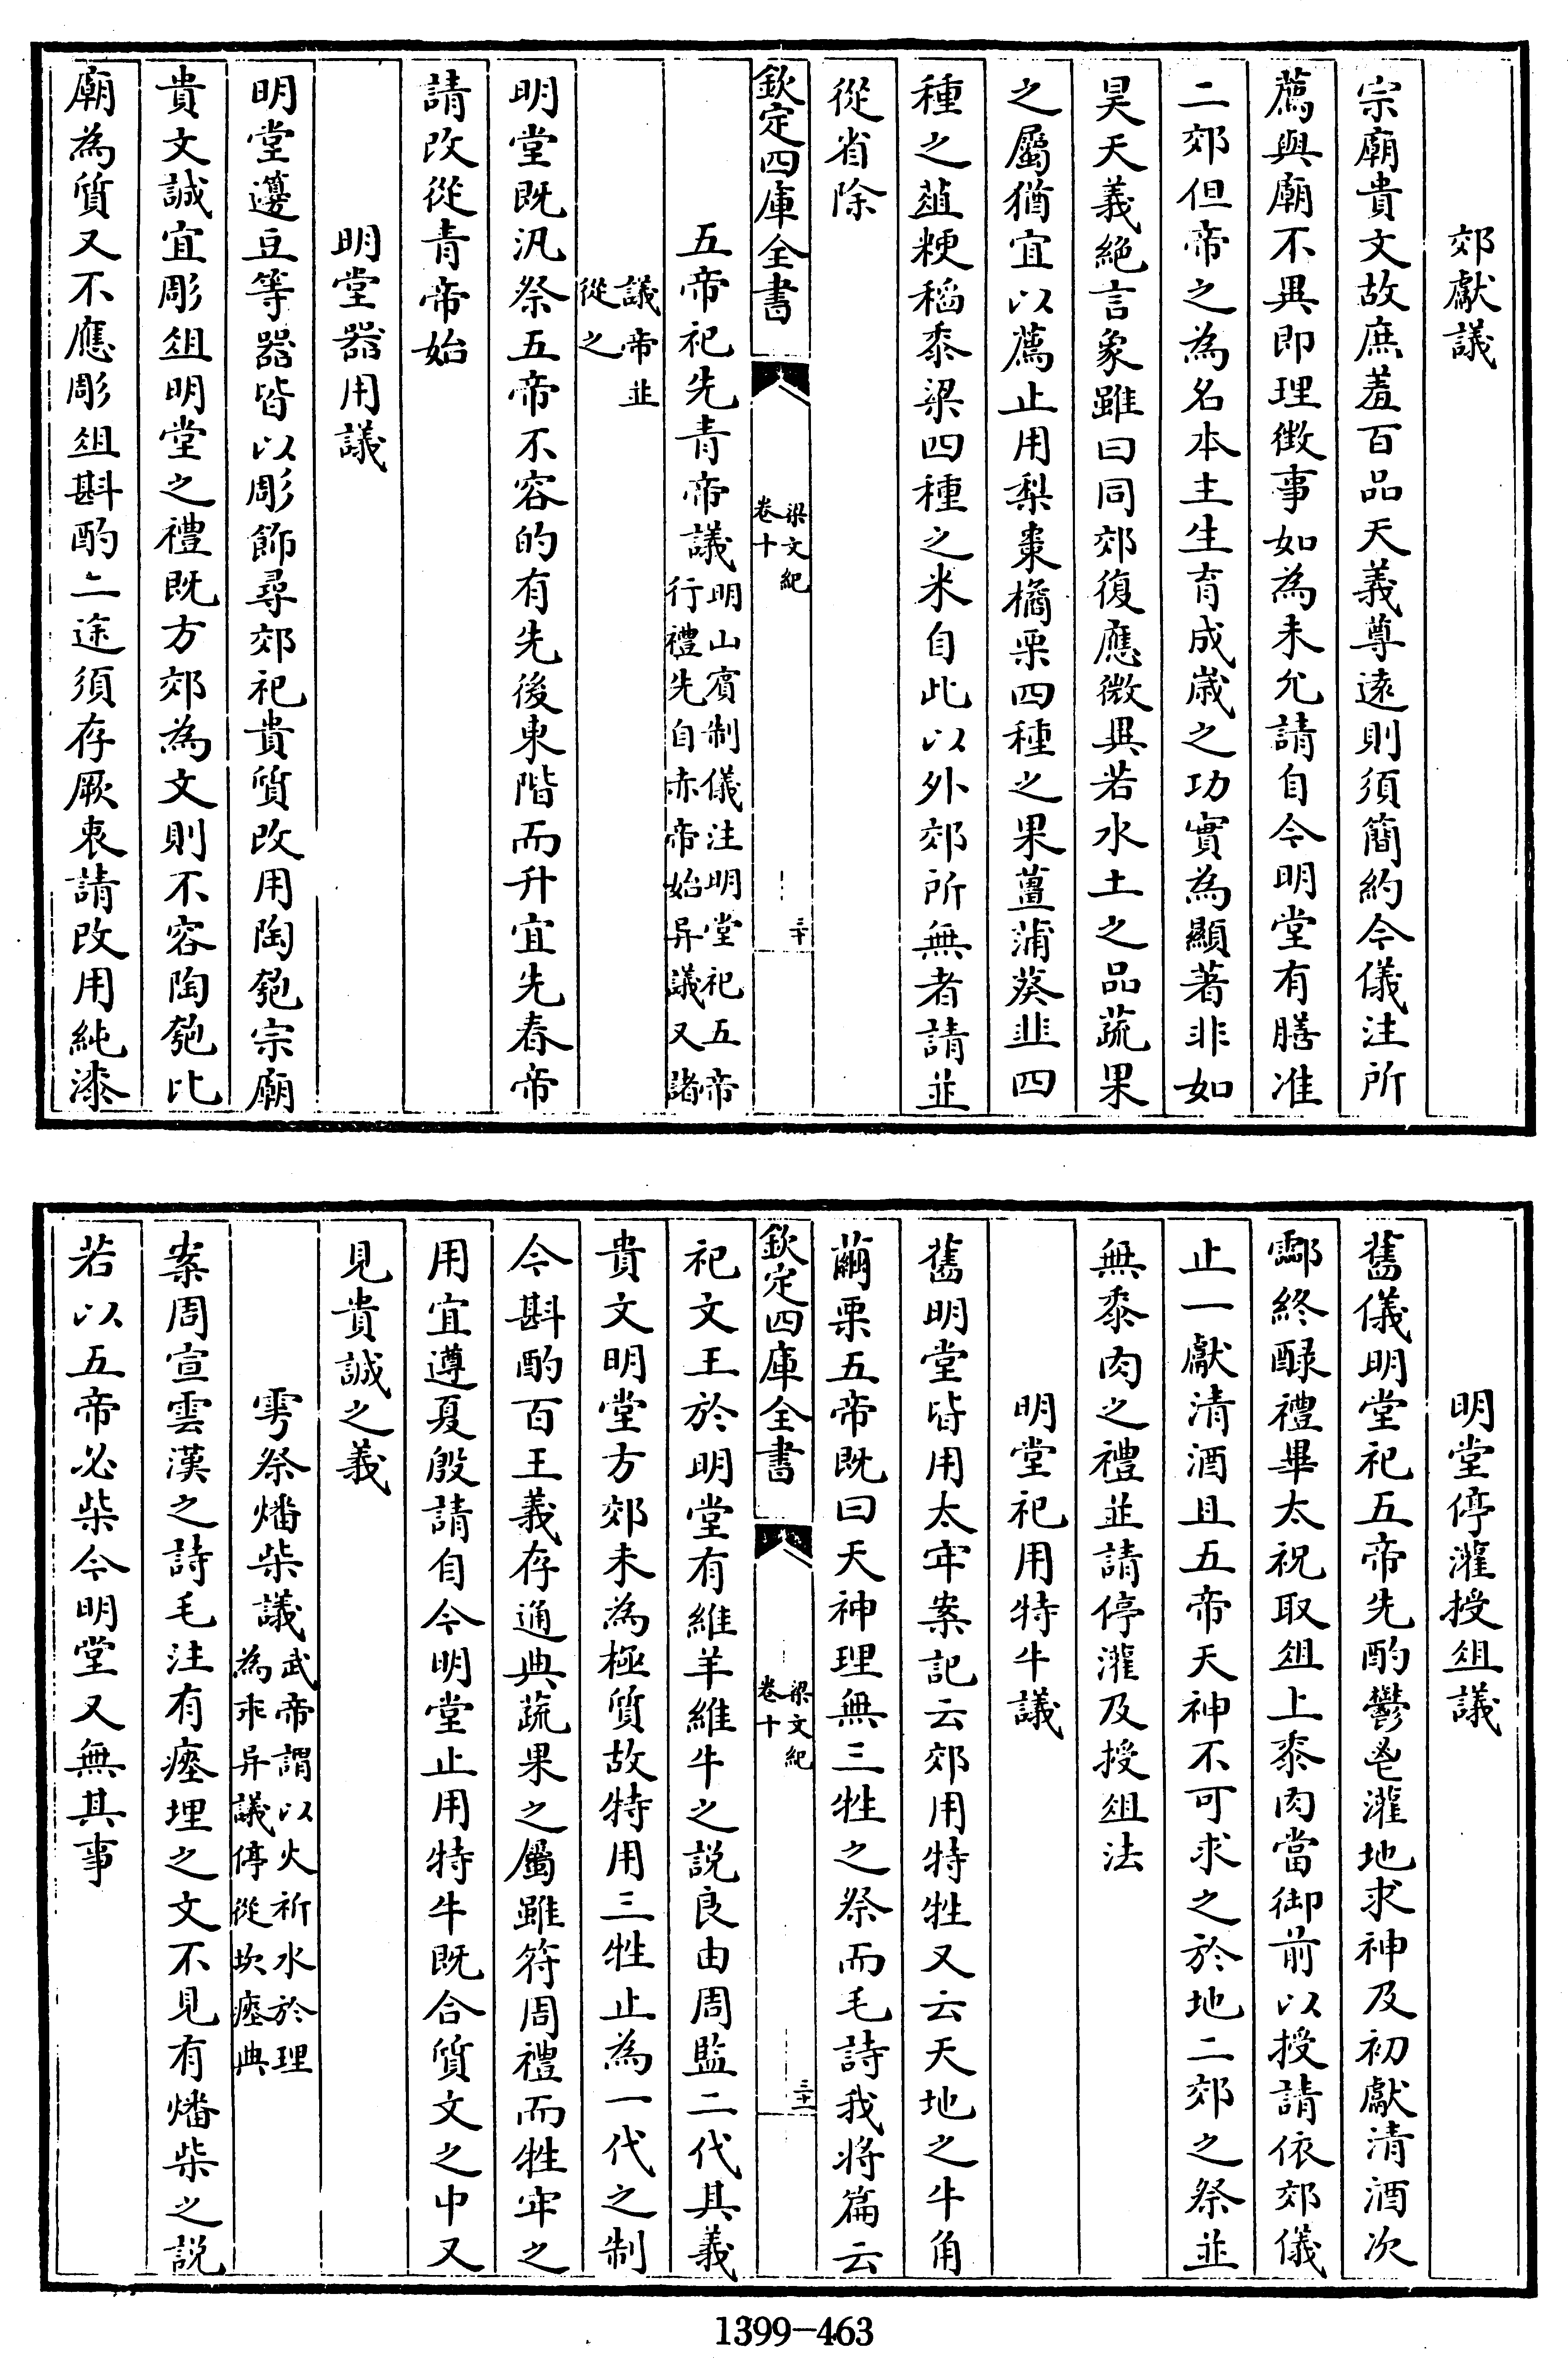 郊獻議
宗廟貴文故庶羞百品天義尊遠則須簡約今儀注所
薦與廟不異即理徴事如為未允請自今明堂有膳准
二郊但帝之為名本主生育成嵗之功實為顯著非如
昊天義絶言象雖曰同郊復應微異若水土之品蔬果
之屬猶宜以薦止用梨棗橘栗四種之果薑蒲葵韭四
種之葅粳稻黍粱四種之米自此以外郊所無者請並
從省除
欽定四庫全書
梁文紀
卷十
三十
五帝祀先青帝議明山賓制儀注明堂祀五帝
行禮先自赤帝始异議又諸
議帝並
從之
明堂既汎祭五帝不容的有先後東階而升宜先春帝
請改從青帝始
明堂器用議
明堂籩豆等器皆以彫飾尋郊祀貴質改用陶匏宗廟
貴文誠宜彫俎明堂之禮既方郊為文則不容陶匏比
廟為質又不應彫俎斟酌二途須存厥衷請改用純漆
明堂停灌授俎議
舊儀明堂祀五帝先酌鬱鬯灌地求神及初獻清酒次
酃終醁禮畢太祝取俎上黍肉當御前以授請依郊儀
止一獻清酒且五帝天神不可求之於地二郊之祭並
無黍肉之禮並請停灌及授俎法
明堂祀用特牛議
舊明堂皆用太牢案記云郊用特牲又云天地之牛角
繭栗五帝既曰天神理無三牲之祭而毛詩我將篇云
欽定四庫全書
梁文紀
卷十
三十一
祀文王於明堂有維羊維牛之説良由周監二代其義
貴文明堂方郊未為極質故特用三牲止為一代之制
今斟酌百王義存通典蔬果之屬雖符周禮而牲牢之
用宜遵夏殷請自今明堂止用特牛既合質文之中又
見貴誠之義
雩祭燔柴議武帝謂以火祈水於理
為乖异議停從坎瘞典
案周宣雲漢之詩毛注有瘞埋之文不見有燔柴之説
若以五帝必柴今明堂又無其事
1399-463